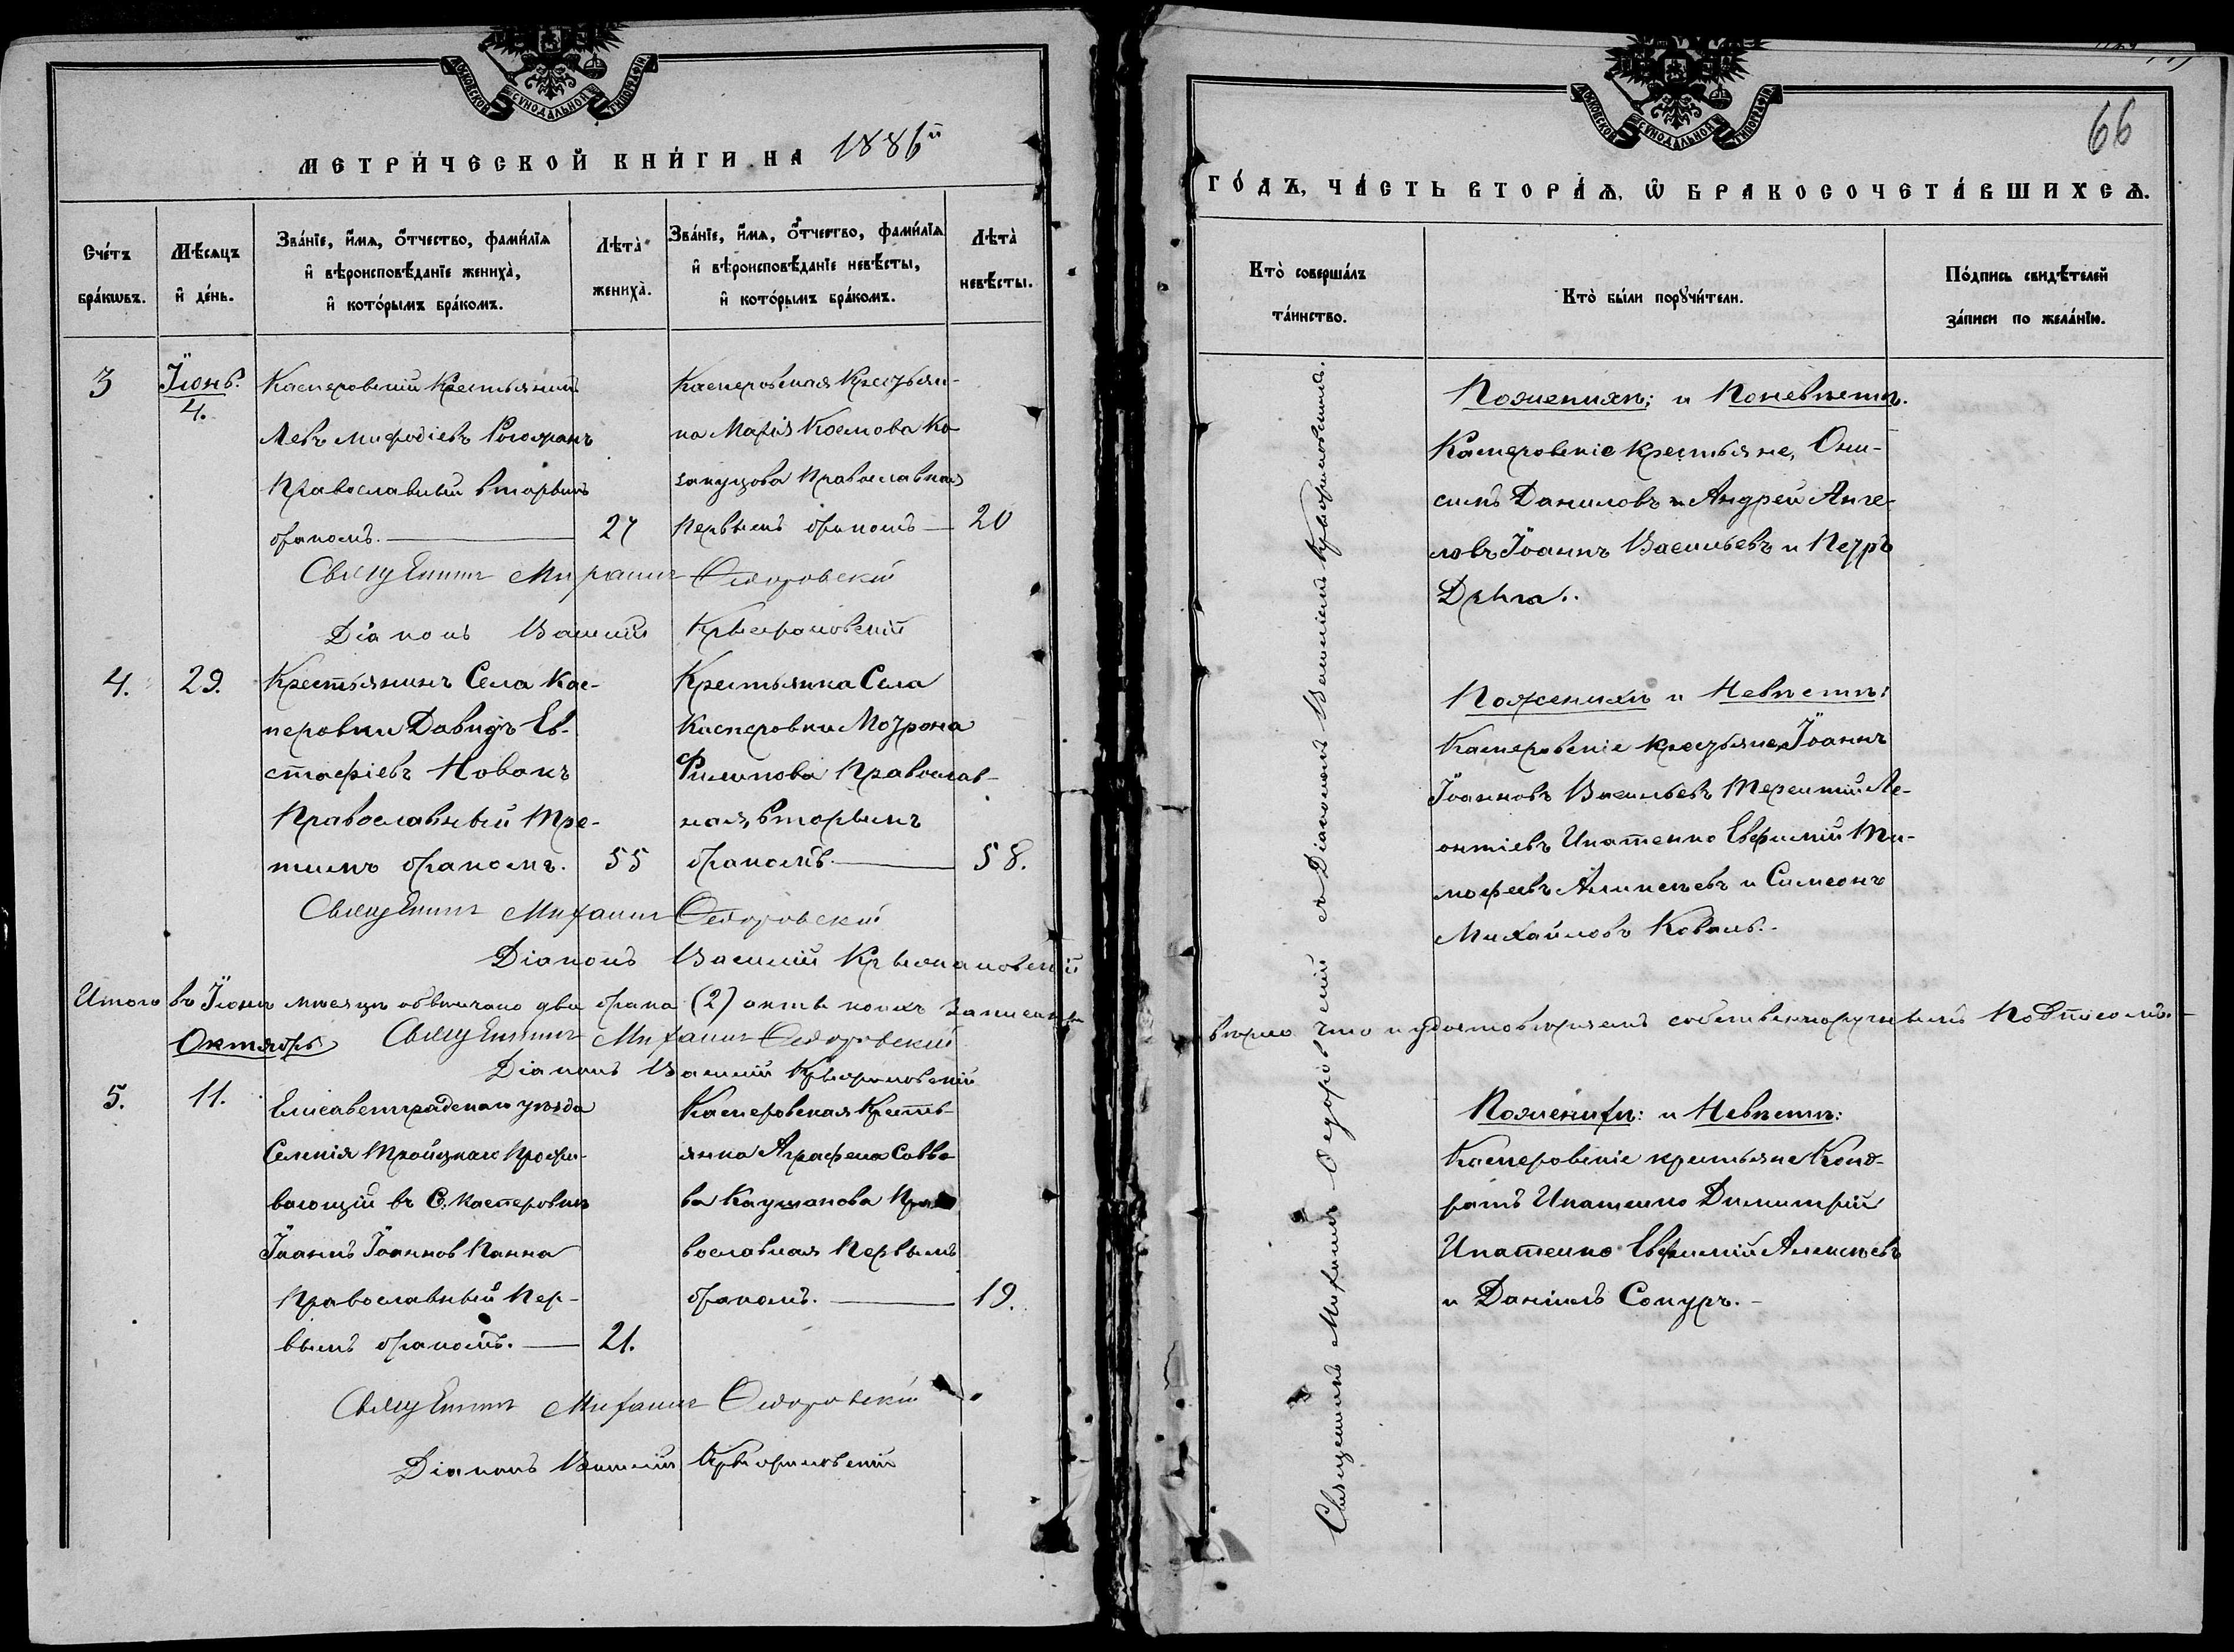 МОСКОВСКОЙ СУНОДАЛЬНОЙ ТИПОГРАФІИ
МЕТРИ́ЧЕСКОЙ КНИ́ГИ НА 1886й
Сче́тъ бра́кѡвъ.
Мѣ́сяцъ и҆ де́нь.
Зва́нїе, и҆́мѧ, ѻ҆́тчество, фами́лїѧ
и҆ вѣроисповѣ́данїе жениха̀,
и҆ кото́рымъ бра́комъ.
Лѣта̀
жениха̀.
Зва́нїе, и҆́мѧ, ѻ҆́тчество, фами́лїѧ
и҆ вѣроисповѣ́данїе невѣ́сты,
и҆ кото́рымъ бра́комъ.
Лѣта̀
невѣ́сты.
3
Іюнь.
4.
Касперовскій Крестьянинъ
Левъ Мифодіевъ
Православный вторымъ
бракомъ.
27
Касперовская Крестьян-
ка Марія Космова Ко-
запуцова Православная
Первымъ бракомъ
20
Священникъ Михаилъ Ѳедоровскій
Діаконъ Василій Крыжановскій
4.
29.
Крестьянинъ Села Кас-
перовки Давидъ Ев-
стафіевъ Новакъ
Православный Тре-
тимъ бракомъ.
55
Крестьянка Села
Касперовки Мотрона
Филипова Православ-
ная, вторымъ
бракомъ.
58.
Священникъ Михаилъ Ѳедоровскій
Діаконъ Василій Крыжановскій
Итого въ Іюнѣ мѣсяцѣ обвѣнчано два брака (2) акты коихъ записаны
Октябрь
Священникъ Михаилъ Ѳедоровскій
Діаконъ Василій Крыжановскій
5.
11.
Елисаветградскаго уѣзда
Селенія Тройцкаго Прожи-
вающій въ С. Касперовкѣ
Іоаннъ Іоанновъ Панна
Православный Пер-
вымъ бракомъ.
21.
Касперовская Кресть-
янка Аграфена Савво-
ва Каушанова Пра-
вославная Первымъ
бракомъ.
19.
Священникъ Михаилъ Ѳедоровскій
Діаконъ Василій Крыжановскій
МОСКОВСКОЙ СУНОДАЛЬНОЙ ТИПОГРАФІИ
66
ГО́ДЪ, ЧА́СТЬ ВТОРА́Ѧ, Ѽ БРАКОСОЧЕТА́ВШИХСѦ.
Кто̀ соверша́лъ
та́инство.
Кто̀ бы́ли порꙋчи́тели.
По́дпись свидѣ́телей
за́писи по жела́нїю.
Священникъ Михаилъ Ѳедоровскій съ Діакономъ Василіемъ Крыжановскимъ.
По женихѣ; и По невѣстѣ.
Касперовскіе крестьяне, Они-
симъ Даниловъ и Андрей Анге-
ловъ Іоаннъ Васильевъ и Петръ
По женихѣ и Невѣстѣ:
Касперовскіе крестьяне, Іоаннъ
Іоанновъ Васильевъ Терентій Ле-
онтіевъ Ипатенко Евфимій Ти-
мофеевъ Алексѣевъ и Симеонъ
Михайловъ Коваль.
вѣрно что и удостовѣряемъ собственноручнымъ Подписомъ.
По женихѣ: и Невѣстѣ:
Касперовскіе крестьяне Конд-
ратъ Ипатенко Димитрій
Ипатенко Евфимій Алексѣевъ
и Даніилъ Сокуръ.